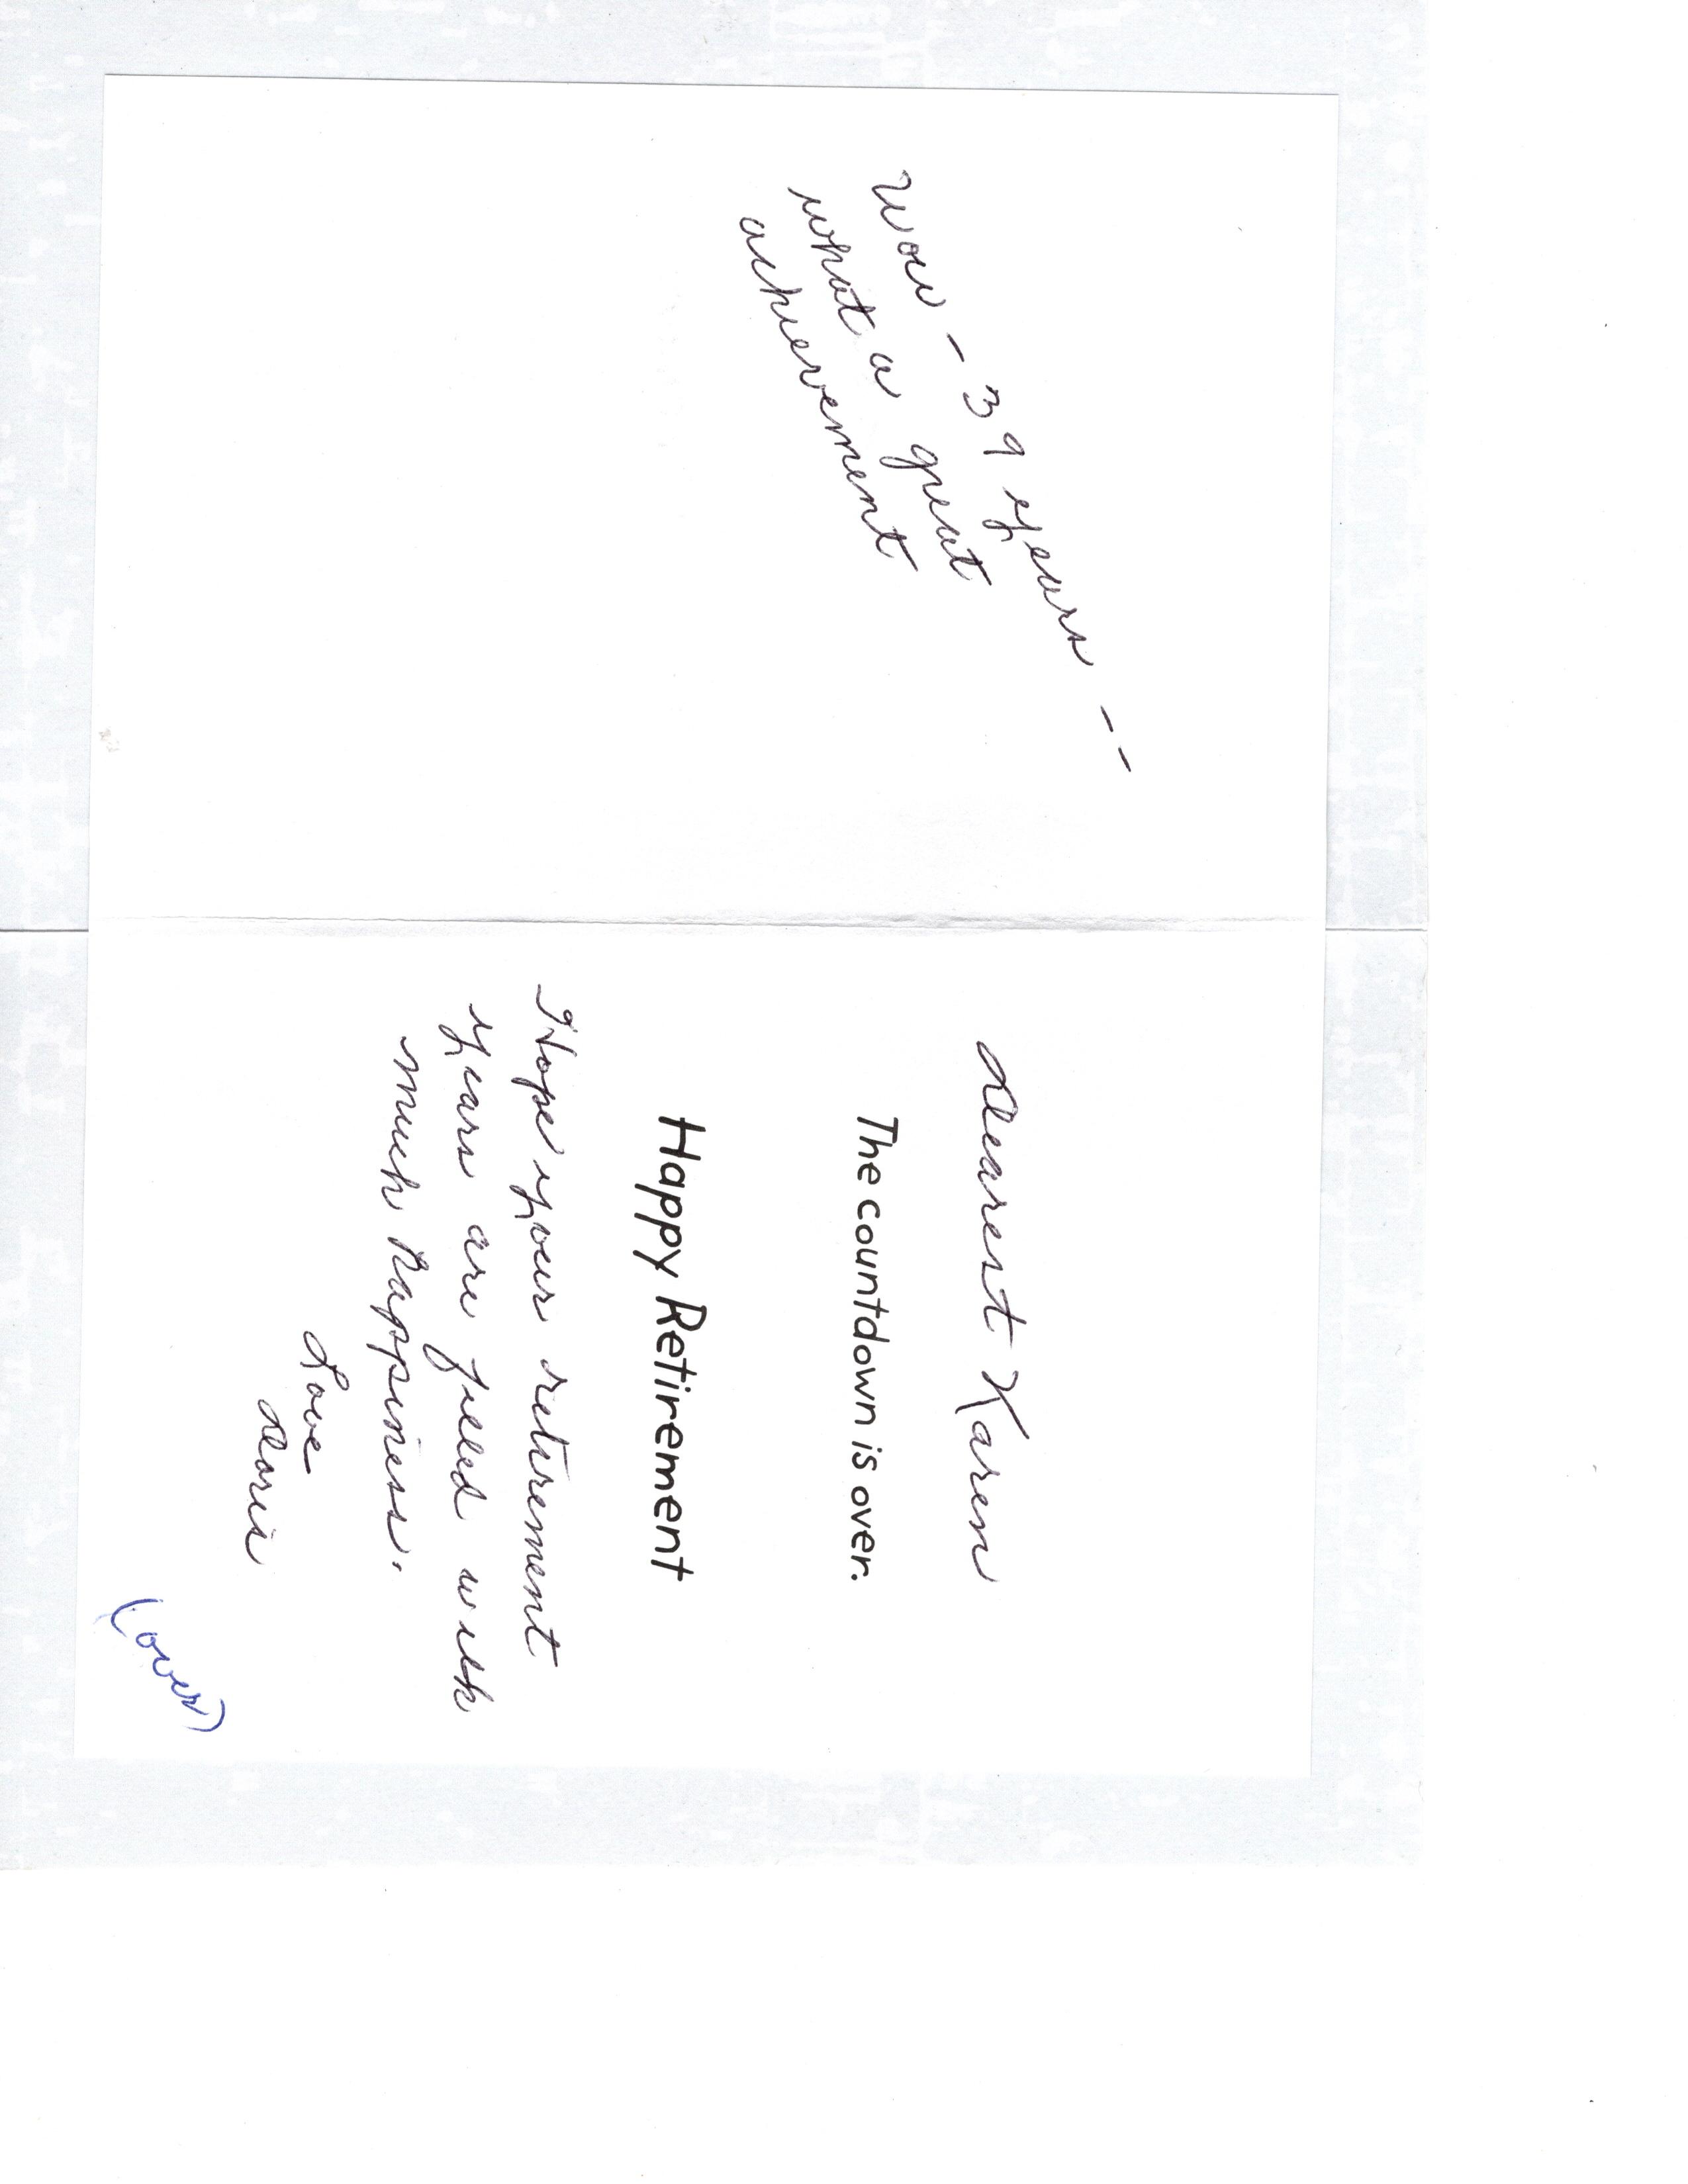 Wow - 39 years --
what a great
achievement
Dearest Karen
The countdown is over.
Happy Retirement
Hope your retirement
years are filled with
much happiness.
Love
Doris
(over)